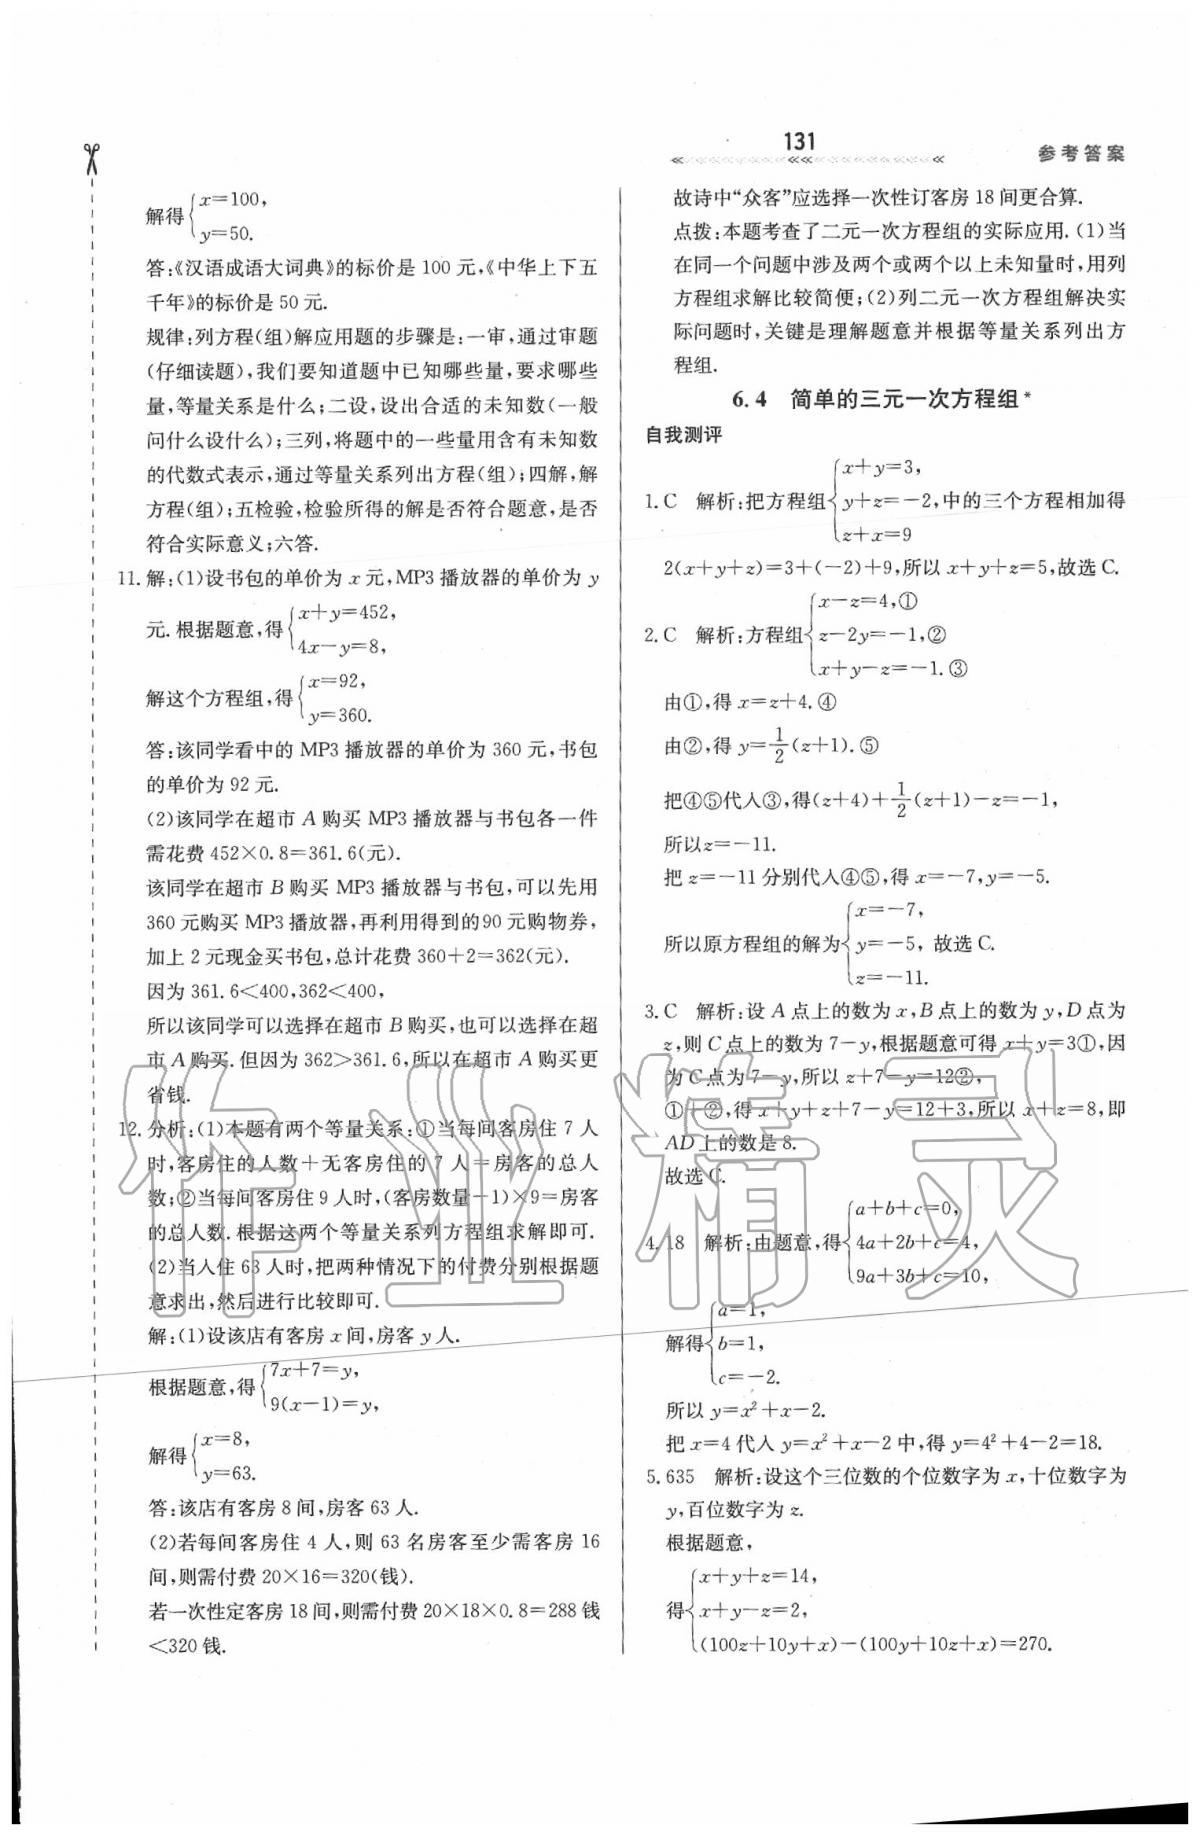 131
参考答案
解得{x=100,
y=50.
答:《汉语成语大词典》的标价是 100 元,《中华上下五
千年》的标价是 50 元.
规律:列方程(组)解应用题的步骤是:一审,通过审题
(仔细读题),我们要知道题中已知哪些量,要求哪些
量,等量关系是什么;二设,设出合适的未知数(一般
问什么设什么);三列,将题中的一些量用含有未知数
的代数式表示,通过等量关系列出方程(组);四解,解
方程(组);五检验,检验所得的解是否符合题意,是否
符合实际意义;六答.
11. 解:(1)设书包的单价为 x 元,MP3 播放器的单价为 y
元.根据题意,得{x+y=452,
4x-y=8,
解这个方程组,得{x=92,
y=360.
答:该同学看中的 MP3 播放器的单价为 360 元,书包
的单价为 92 元.
(2)该同学在超市 A 购买 MP3 播放器与书包各一件
需花费 452×0.8=361.6(元).
该同学在超市 B 购买 MP3 播放器与书包,可以先用
360 元购买 MP3 播放器,再利用得到的90 元购物券,
加上 2 元现金买书包,总计花费 360+2=362(元).
因为 361.6<400,362<400,
所以该同学可以选择在超市 B 购买,也可以选择在超
市 A 购买.但因为 362>361.6,所以在超市 A 购买更
省钱.
12. 分析:(1)本题有两个等量关系:①当每间客房住 7 人
时,客房住的人数+无客房住的 7 人=房客的总人
数;②当每间客房住 9 人时,(客房数量-1)×9=房客
的总人数.根据这两个等量关系列方程组求解即可.
(2)当人住 63 人时,把两种情况下的付费分别根据题
意求出,然后进行比较即可.
解:(1)设该店有客房 x 间,房客 y 人.
根据题意,得{7x+7=y,
9(x-1)=y,
解得{x=8,
y=63.
答:该店有客房 8 间,房客 63 人.
(2)若每间客房住 4 人,则 63 名房客至少需客房 16
间,则需付费 20×16=320(钱).
若一次性定客房 18 间,则需付费 20×18×0.8=288 钱
<320 钱.
故诗中“众客”应选择一次性订客房 18 间更合算.
点拨:本题考查了二元一次方程组的实际应用.(1)当
在同一个问题中涉及两个或两个以上未知量时,用列
方程组求解比较简便;(2)列二元一次方程组解决实
际问题时,关键是理解题意并根据等量关系列出方
程组.
6.4 简单的三元一次方程组*
自我测评
x+y=3,
1. C 解析:把方程组{y+z=-2,中的三个方程相加得
z+x=9
2(x+y+z)=3+(-2)+9,所以 x+y+z=5,故选 C.
x-z=4,①
2. C 解析:方程组{z-2y=-1,②
x+y-z=-1.③
由①,得 x=z+4.④
由②,得 y=1/2(z+1).⑤
把④⑤代人③,得(z+4)+1/2(z+1)-z=-1,
所以z=-11.
把 z=-11 分别代人④⑤,得 x=-7,y=-5.
x=-7,
所以原方程组的解为{y=-5, 故选 C.
z=-11.
3. C 解析:设 A 点上的数为 x,B 点上的数为 y,D 点为
z,则 C 点上的数为 7-y,根据题意可得 x+y=3①,因
为 C 点为 7-y,所以 z+7-y=12②,
①+②,得 x+y+z+7-y=12+3,所以 x+z=8,即
AD 上的数是 8.
故选 C.
a+b+c=0,
4. 18 解析:由题意,得{4a+2b+c=4,
9a+3b+c=10,
a=1,
解得{b=1,
c=-2.
所以 y=x²+x-2.
把 x=4 代人 y=x²+x-2 中,得 y=4²+4-2=18.
5. 635 解析:设这个三位数的个位数字为 x,十位数字为
y,百位数字为 z.
根据题意,
x+y+z=14,
得{x+y-z=2,
(100z+10y+x)-(100y+10z+x)=270.
作业精灵